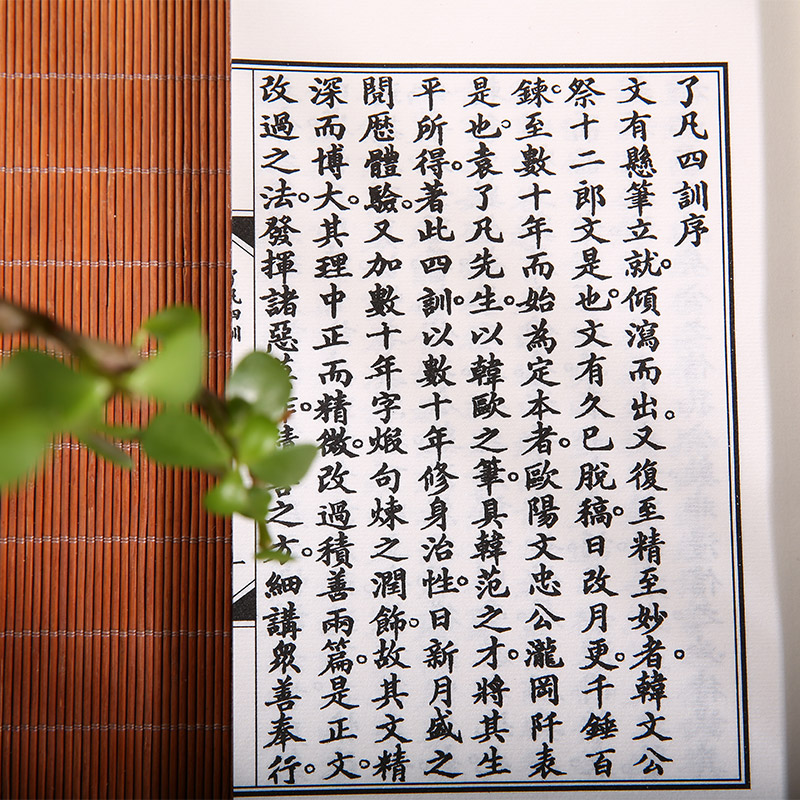 了凡四訓序
文有懸筆立就。傾瀉而出。又復至精至妙者。韓文公
祭十二郎文是也。文有久已脫稿。日改月更。千錘百
鍊。至數十年而始為定本者。歐陽文忠公瀧岡阡表
是也。袁了凡先生。以韓歐之筆。具韓范之才。將其生
平所得。著此四訓。以數十年修身治性。日新月盛之
閱歷體驗。又加數十年字煆句煉之潤飾。故其文精
深而博大。其理中正而精微。改過積善兩篇。是正文。
改過之法。發揮諸惡。善之方。細講眾善奉行。
凡四訓